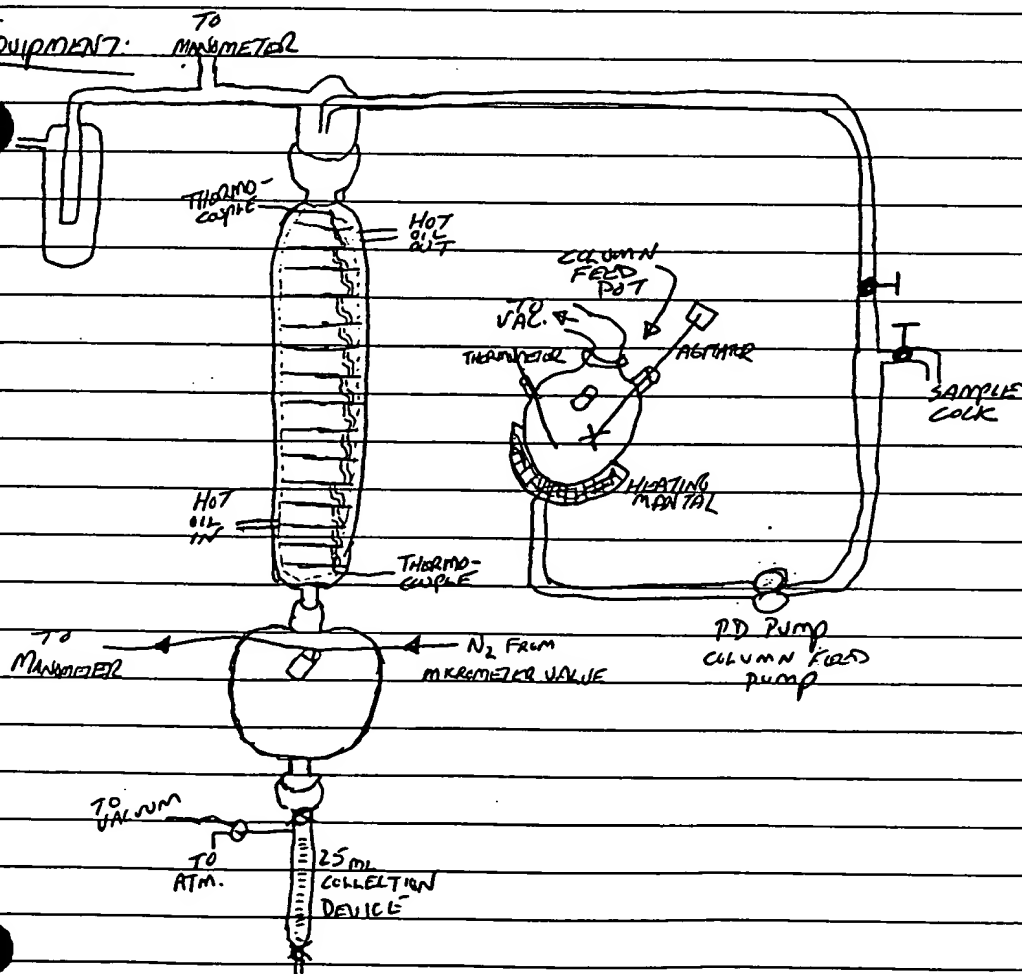 EQUIPMENT:
TO
MANOMETER
THERMO-
COUPLE
HOT
OIL
OUT
COLUMN
FEED
POT
TO
VAC.
THERMOMETER
AGITATOR
SAMPLE
COCK
HEATING
MANTAL
HOT
OIL
IN
THERMO-
COUPLE
PD PUMP
COLUMN FEED
PUMP
TO
MANOMETER
N2 FROM
MICROMETER VALVE
TO
VACUUM
TO
ATM.
25 ML
COLLECTION
DEVICE